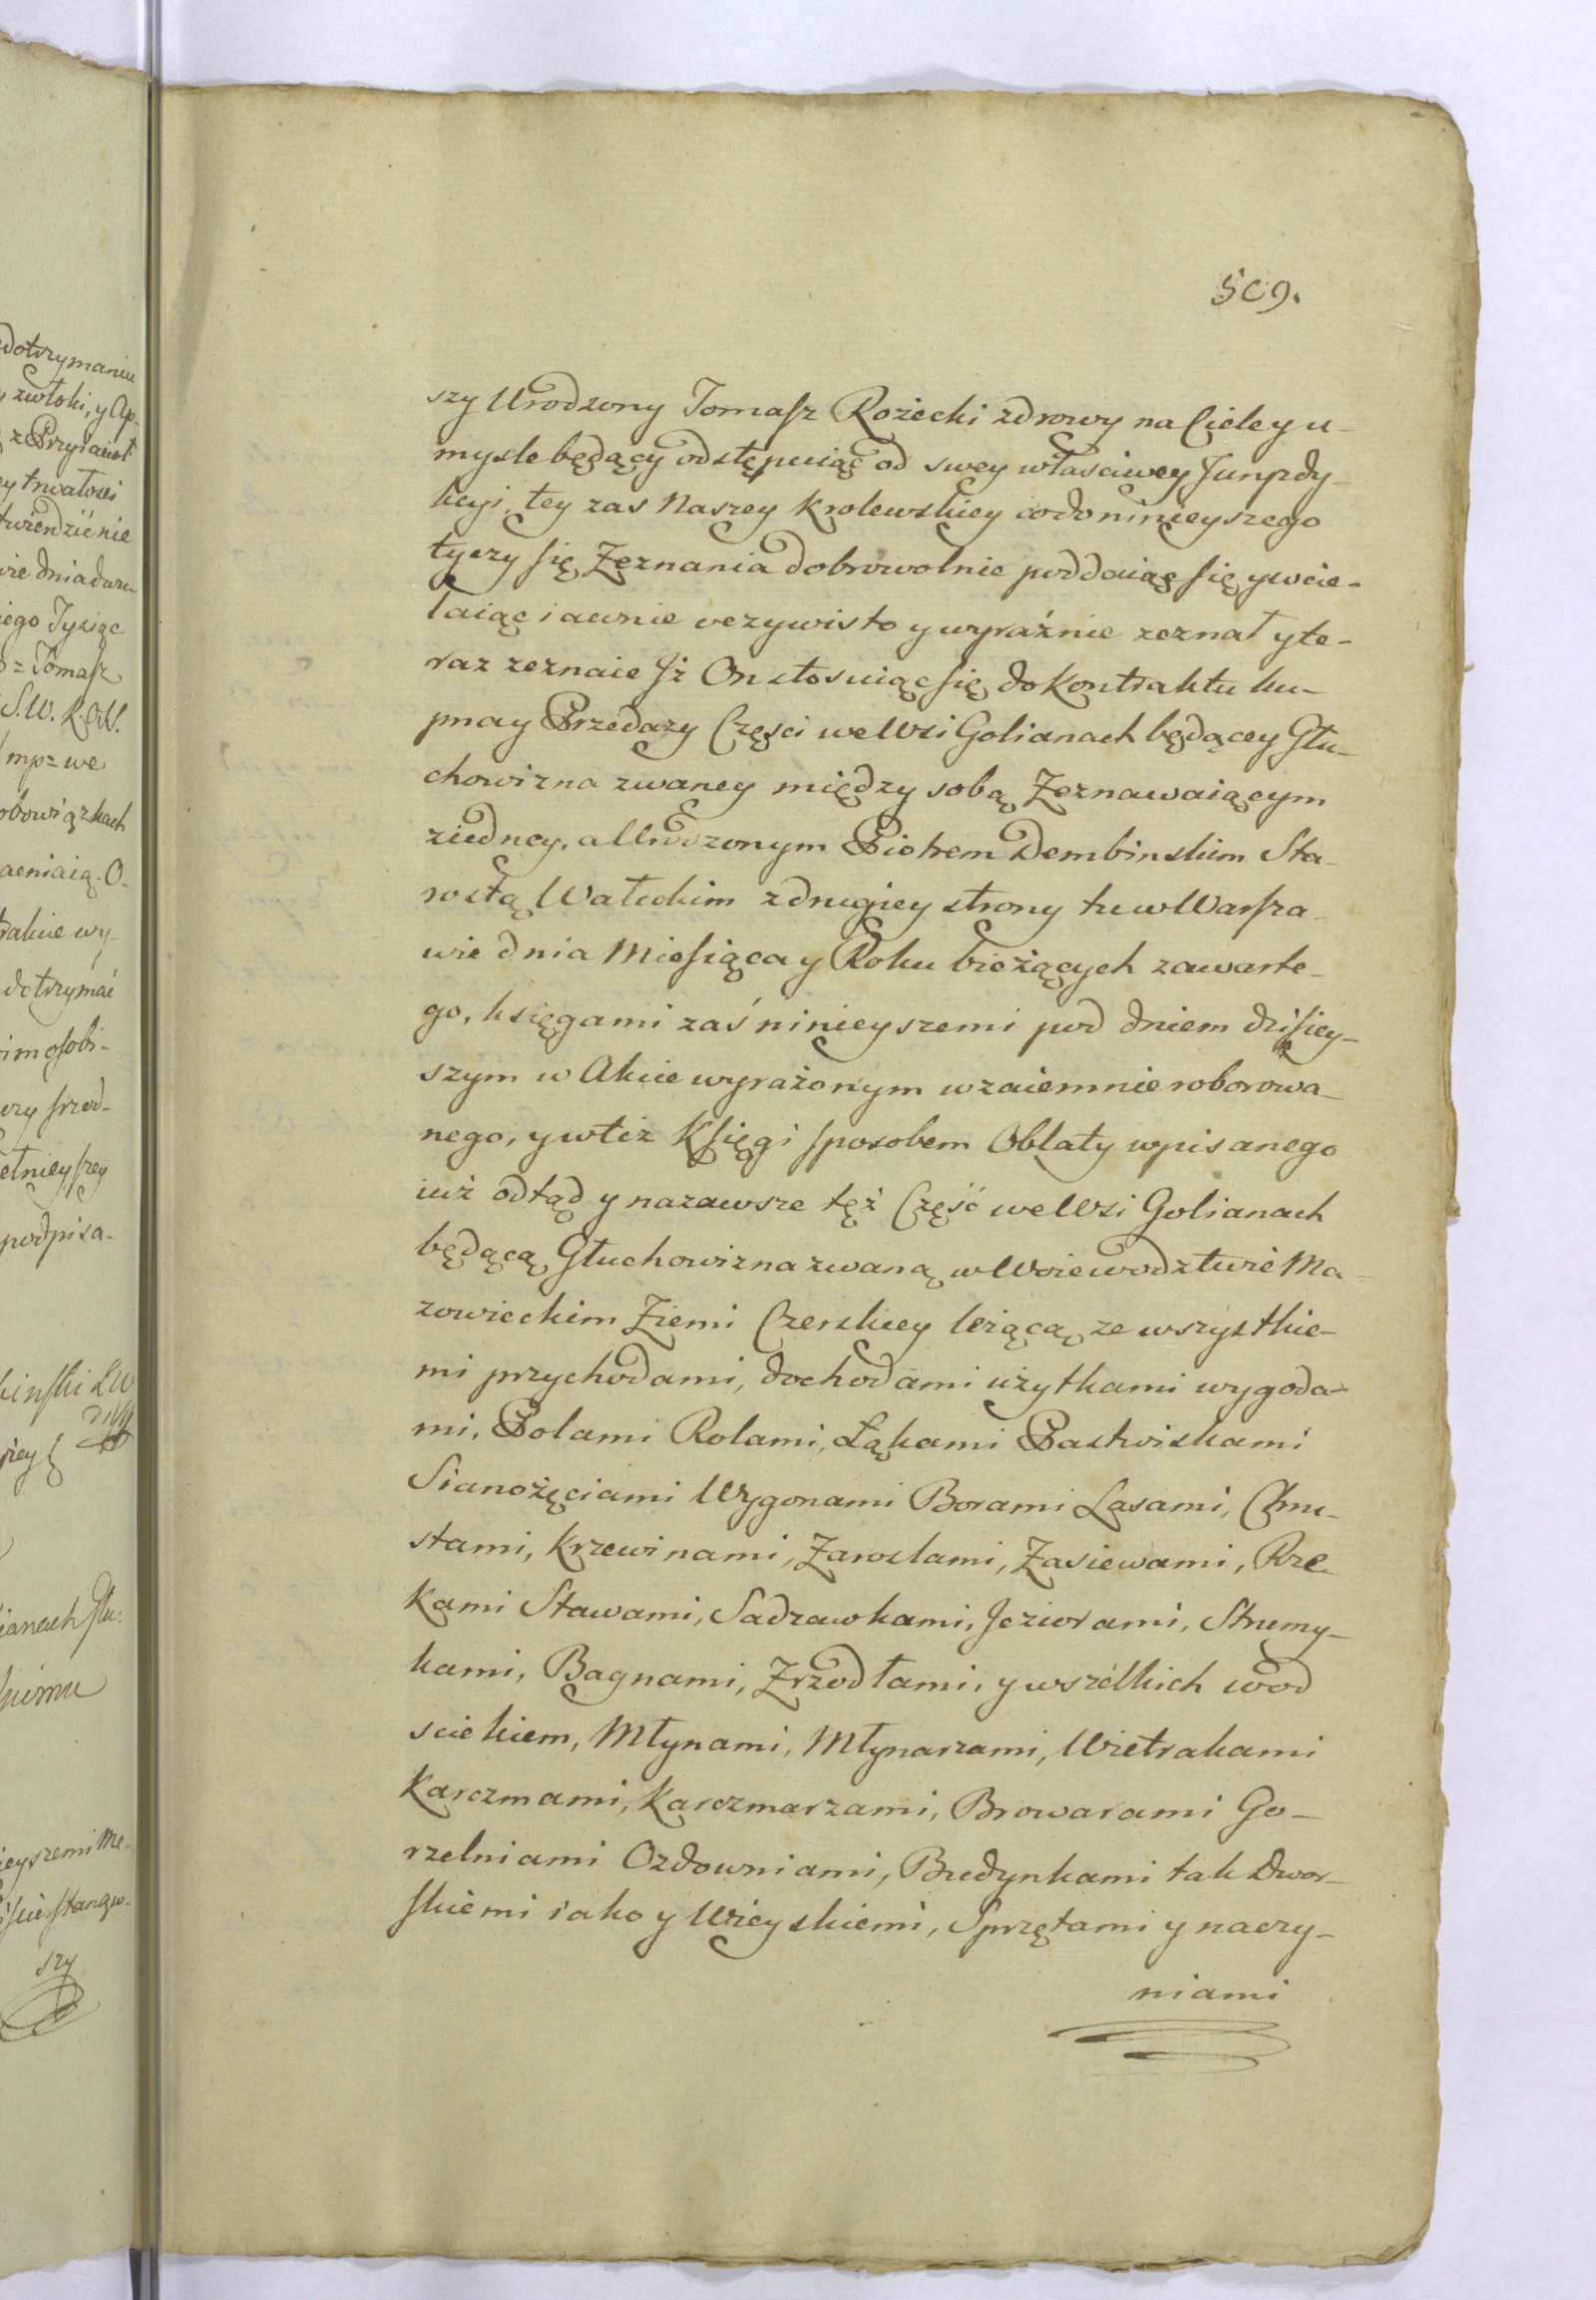 509.
szy Urodzony Tomasz Rożecki zdrowy na Ciele y u-
mysle będący odstępuiąc od swey własciwey Juryzdy-
kcyi, tey zas Naszey Krolewskiey co do ninieyszego
tyczy się Zeznania dobrowolnie poddaiąc się y wcie-
laiąc iawnie oczywisto y wyraźnie zeznał y te-
raz zeznaie Jż On stosuiąc się do Kontraktu ku-
pna y Przedaży Częsci we Wsi Golianach będącey Głu-
chowizna zwaney między sobą Zeznawaiącym
ziedney, a Urodzonym Piotrem Dembinskim Sta-
rostą Wałeckim z drugiey strony tu w Warsza-
wie dnia Miesiąca y Roku bieżących zawarte-
go, księgami zaś ninieyszemi pod dniem dzisiey-
szym w Akcie wyrażonym wzaiemnie roborowa-
nego, y w też Księgi sposobem Oblaty wpisanego
iuż odtąd y nazawsze tęż Część we Wsi Golianach
będącą Głuchowizna zwaną w Woiewodztwie Ma-
zowieckim Ziemi Czerskiey leżącą ze wszystkie-
mi przychodami, dochodami użytkami wygoda-
mi, Polami Rolami, Łąkami Pastwiskami
Sianożęciami Wygonami Borami Lasami, Chru-
stami, Krzewinami, Zaroslami, Zasiewami, Rze-
kami Stawami, Sadzawkami, Jeziorami, Strumy-
kami, Bagnami, Zrzodłami, y wszelkich wod
sciekiem, Młynami, Młynarzami, Wietrakami
Karczmami, Karczmarzami, Browarami Go-
rzelniami Ozdowniami, Budynkami tak Dwor-
skiemi iako y Wieyskiemi, Sprzętami y naczy-
niami